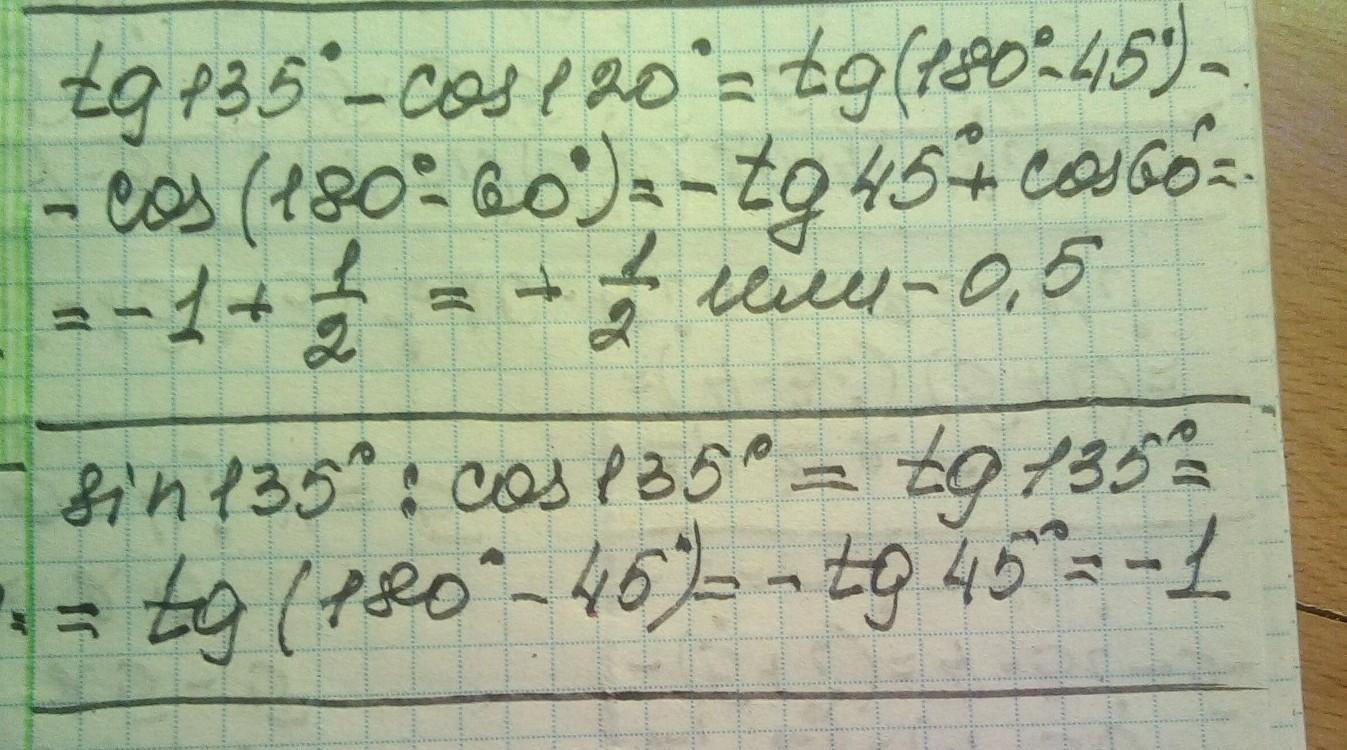 tg 135° - cos 120° = tg (180° - 45°) -
- cos (180° - 60°) = - tg 45° + cos 60° =
= - 1 + 1/2 = + 1/2 или - 0,5
sin 135° : cos 135° = tg 135° =
= tg (180° - 45°) = - tg 45° = - 1